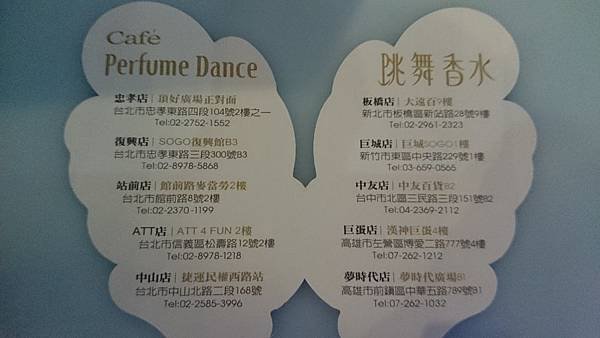 Café
Perfume Dance
忠孝店│頂好廣場正對面
台北市忠孝東路四段104號2樓之一
Tel:02-2752-1552
復興店│SOGO復興館B3
台北市忠孝東路三段300號B3
Tel:02-8978-5868
站前店│館前路麥當勞2樓
台北市館前路8號2樓
Tel:02-2370-1199
ATT店│ATT 4 FUN 2樓
台北市信義區松壽路12號2樓
Tel:02-8978-1218
中山店│捷運民權西路站
台北市中山北路二段168號
Tel:02-2585-3996
跳舞香水
板橋店│大遠百9樓
新北市板橋區新站路28號9樓
Tel:02-2961-2323
巨城店│巨城SOGO1樓
新竹市東區中央路229號1樓
Tel:03-659-0565
中友店│中友百貨B2
台中市北區三民路三段151號B2
Tel:04-2369-2112
巨蛋店│漢神巨蛋4樓
高雄市左營區博愛二路777號4樓
Tel:07-262-1212
夢時代店│夢時代廣場B1
高雄市前鎮區中華五路789號B1
Tel:07-262-1032